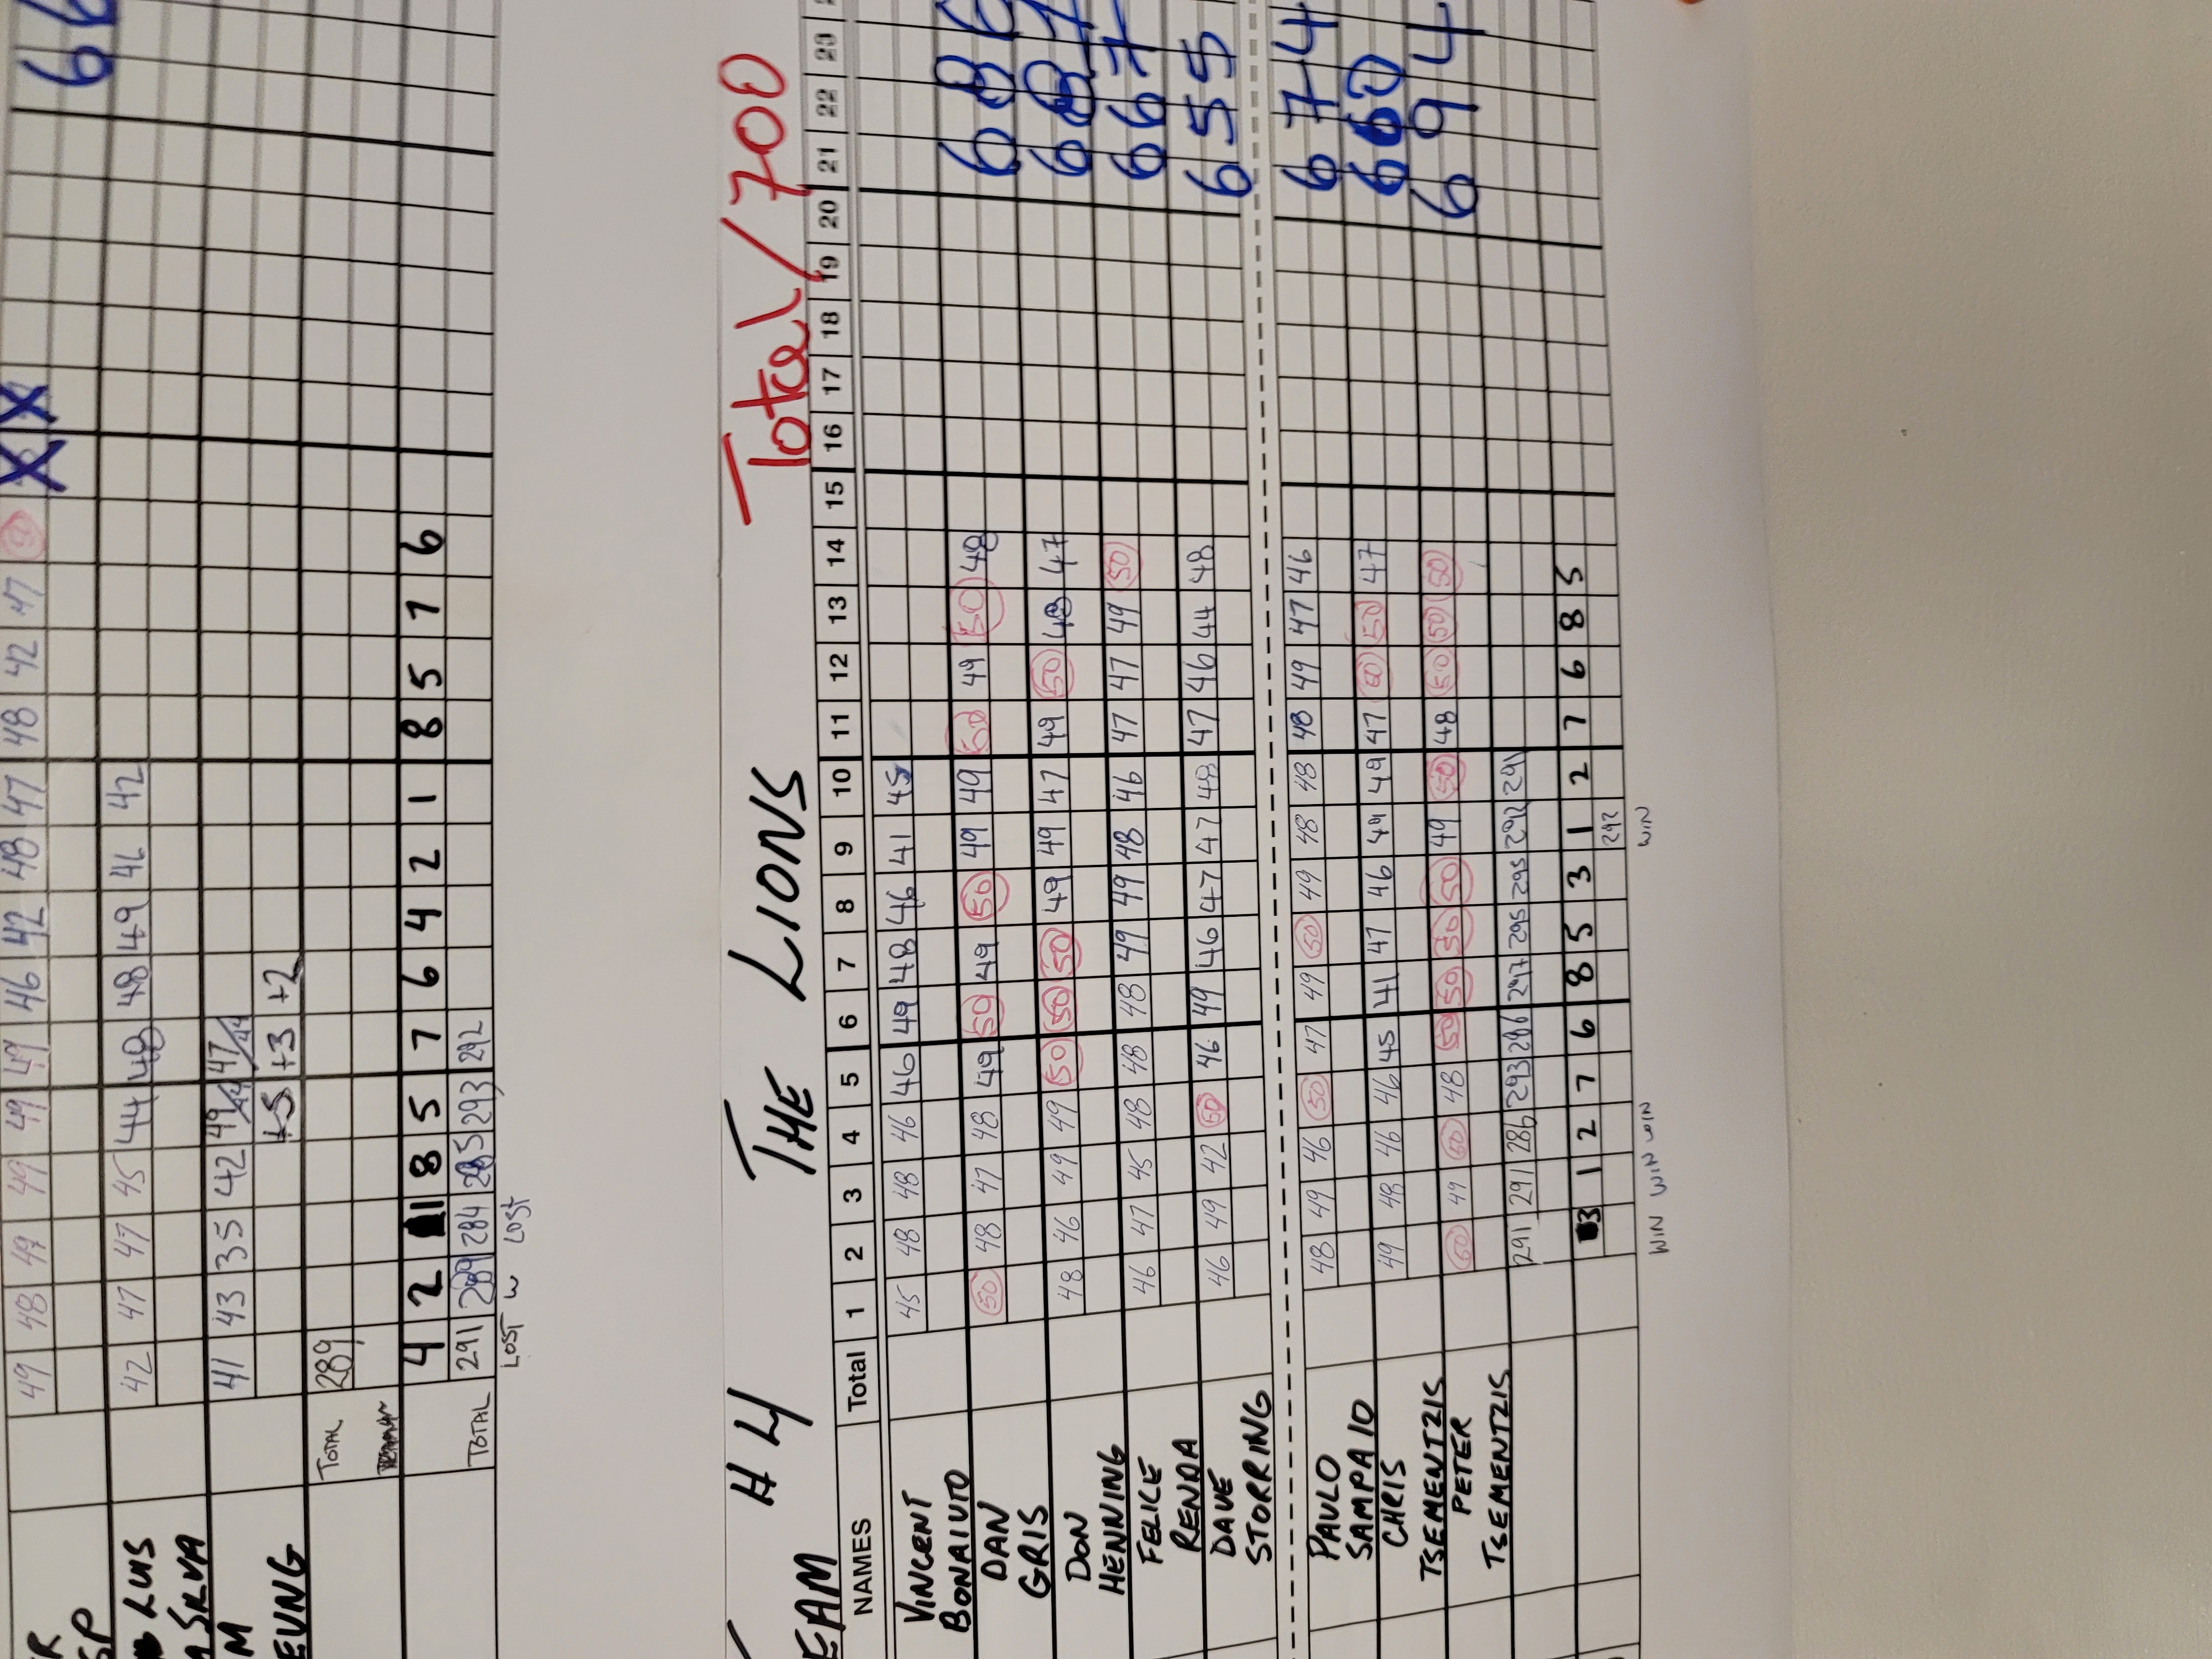 49 48 49 49 49 49 46 42 48 47 48 42 47
X X
LUIS
42 47 47 45 44 48 48 49 46 42
SILVA
M
41 43 35 42 49/44 47/44
EVING
+5 +3 +2
TOTAL
289
4 2 1 8 5 7 6 4 2 1 8 5 7 6
TOTAL 291 289 284 285 293 292
LOST W LOST
Total/700
TEAM #4 THE LIONS
NAMES Total 1 2 3 4 5 6 7 8 9 10 11 12 13 14 15 16 17 18 19 20 21 22 23
VINCENT 45 48 48 46 46 49 48 46 41 45
BONAIUTO
DAN 50 48 47 48 49 50 49 50 49 49 50 49 50 48 686
GRIS
DON 48 46 49 49 50 50 50 49 49 47 49 50 48 47 687
HENNING
FELICE 46 47 45 48 48 48 49 49 48 46 47 47 49 50 667
RENDA
DAVE 46 49 42 50 46 49 46 47 47 48 47 46 44 48 655
STORRING
PAULO 48 49 46 50 47 49 50 49 48 48 48 49 47 46 674
SAMPAIO
CHRIS 49 48 46 46 45 41 47 46 49 49 47 50 50 47 660
TSEMENTZIS
PETER 50 49 50 48 50 50 50 50 49 50 48 50 50 50 694
TSEMENTZIS
291 291 286 293 286 297 295 295 292 291
3 1 2 7 6 8 5 3 1 2 7 6 8 5
292
WIN WIN WIN WIN